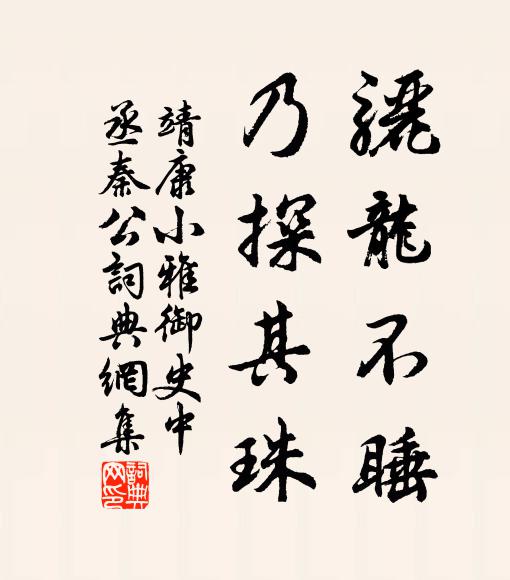 驪龍不睡
乃探其珠
靖康小雅御史中
丞秦公詞典網集
詞典網印